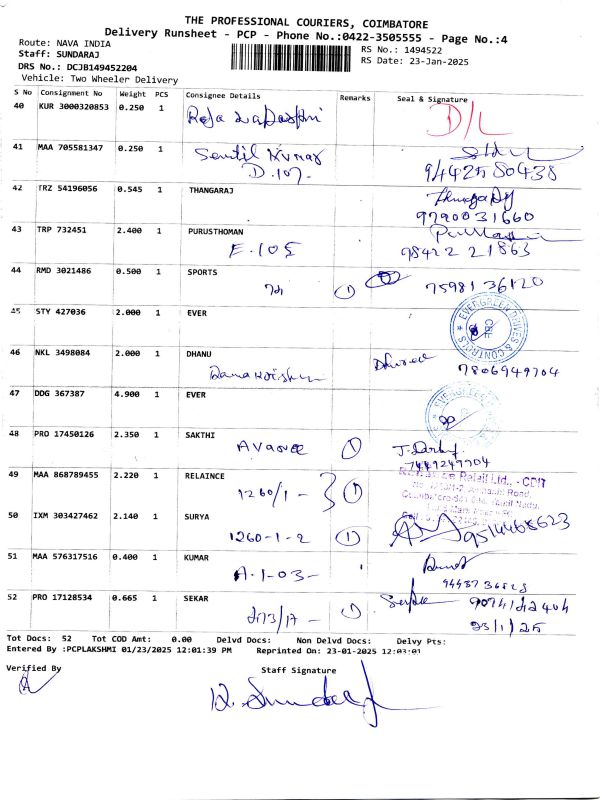 THE PROFESSIONAL COURIERS, COIMBATORE
Delivery Runsheet - PCP - Phone No.:0422-3505555 - Page No.:4
Route: NAVA INDIA
Staff: SUNDARAJ
RS No.: 1494522
DRS No.: DCJB149452204
RS Date: 23-Jan-2025
Vehicle: Two Wheeler Delivery
S No Consignment No Weight PCS Consignee Details Remarks Seal & Signature
40 KUR 3000320853 0.250 1
D/L
41 MAA 705581347 0.250 1 Senthil Kumar
D.107- 9442580438
42 TRZ 54196056 0.545 1 THANGARAJ
9790031660
43 TRP 732451 2.400 1 PURUSTHOMAN
E.105 98422 21863
44 RMD 3021486 0.500 1 SPORTS
1 75981 36120
45 STY 427036 2.000 1 EVER
EVERGREEN DRIVES & CONTROLS
CBE
46 NKL 3498084 2.000 1 DHANU
7806949704
47 DDG 367387 4.900 1 EVER
48 PRO 17450126 2.350 1 SAKTHI
1
49 MAA 868789455 2.220 1 RELAINCE
1260/1- 1
Retail Ltd., - CDIT
Road,
50 IXM 303427462 2.140 1 SURYA
1260-1-2 1 9514468623
51 MAA 576317516 0.400 1 KUMAR
A.1-03-
52 PRO 17128534 0.665 1 SEKAR
273/17- 1
23/1/25
Tot Docs: 52 Tot COD Amt: 0.00 Delvd Docs: Non Delvd Docs: Delvy Pts:
Entered By :PCPLAKSHMI 01/23/2025 12:01:39 PM Reprinted On: 23-01-2025 12:03:01
Verified By Staff Signature